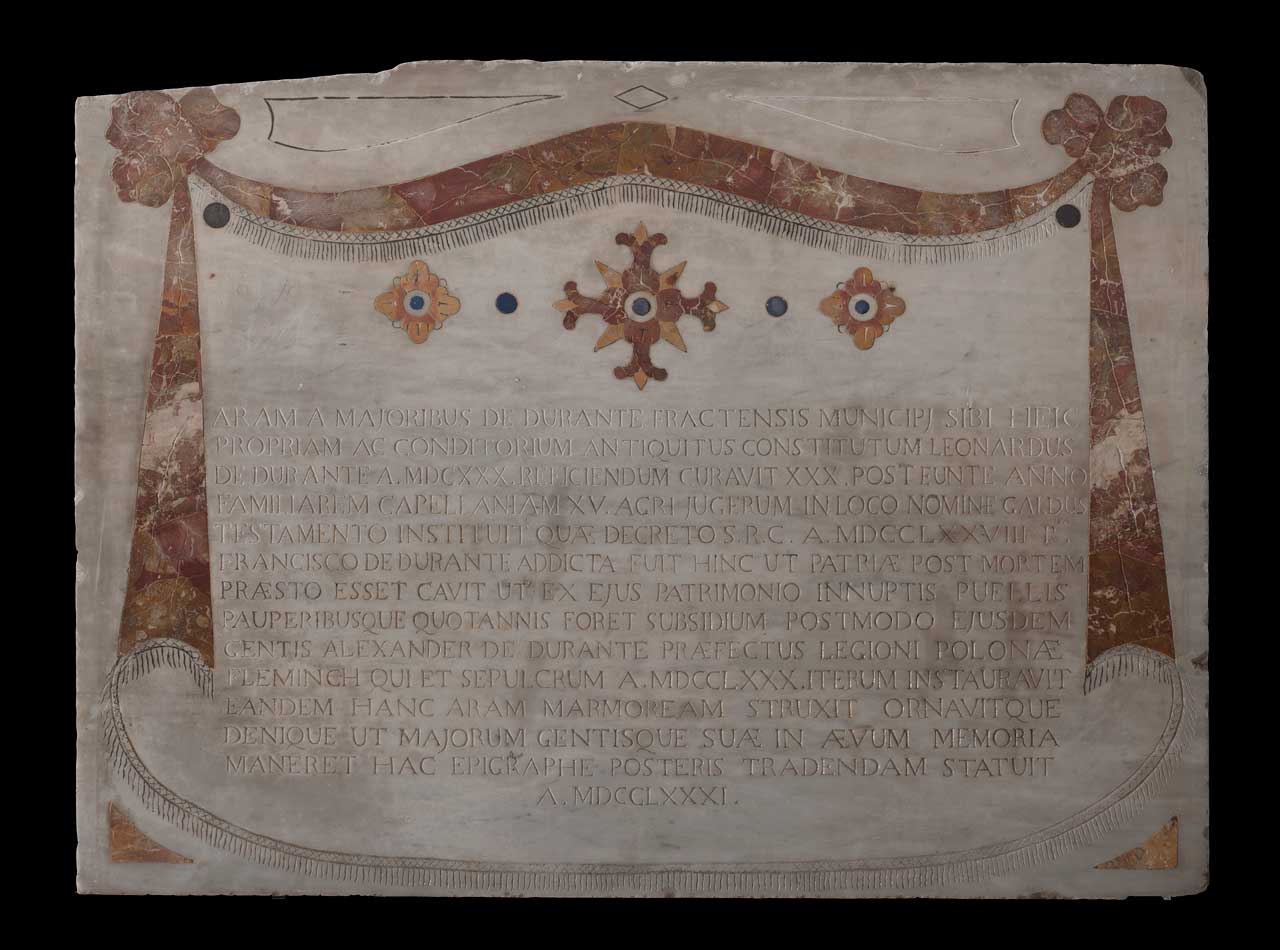 ARAM A MAJORIBUS DE DURANTE FRACTENSIS MUNICIPJ SIBI HEIC
PROPRIAM AC CONDITORIUM ANTIQUITUS CONSTITUTUM LEONARDUS
DE DURANTE A. MDCXXX. REFICIENDUM CURAVIT XXX. POST EUNTE ANNO
FAMILIAREM CAPELLANIÆM XV. AGRI JUGERUM IN LOCO NOMINE GALDUS
TESTAMENTO INSTITUIT QUÆ DECRETO S.R.C. A. MDCCLXXVIII
FRANCISCO DE DURANTE ADDICTA FUIT HINC UT PATRIÆ POST MORTEM
PRÆSTO ESSET CAVIT UT EX EJUS PATRIMONIO INNUPTIS PUELLIS
PAUPERIBUSQUE QUOTANNIS FORET SUBSIDIUM POSTMODO EJUSDEM
GENTIS ALEXANDER DE DURANTE PRÆFECTUS LEGIONI POLONÆ
FLEMINCH QUI ET SEPULCRUM A. MDCCLXXX. ITERUM INSTAURAVIT
EANDEM HANC ARAM MARMOREAM STRUXIT ORNAVITQUE
DENIQUE UT MAJORUM GENTISQUE SUÆ IN ÆVUM MEMORIA
MANERET HAC EPIGRAPHE POSTERIS TRADENDAM STATUIT
A. MDCCLXXXI.